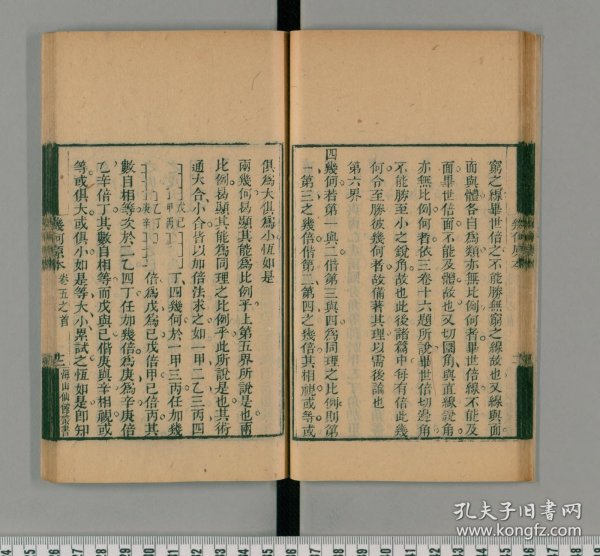 窮之線畢世倍之不能勝無窮之線故也又線與面
面與體各自為類亦無比例何者畢世倍線不能及
面畢世倍面不能及體故也又切圜角與直線銳角
亦無比例何者依三卷十六題所說畢世倍切邊角
不能勝至小之銳角故也此後諸篇中每有倍此幾
何令至勝彼幾何者故備著其理以需後論也
第六界
四幾何若第一與二偕第三與四為同理之比例則第
一第三之幾倍偕第二第四之幾倍其相視或等或
俱為大俱為小恆如是
兩幾何曷顯其能為比例乎上第五界所說是也兩
比例曷顯其能為同理之比例乎此所說是也其術
通大合小合皆以加倍法求之如一甲二乙三丙四
丁四幾何於一甲三丙任加幾
倍為戊為己戊倍甲己倍丙其
數自相等次於二乙四丁任加幾倍為庚為辛庚倍
乙辛倍丁其數自相等而戊與己偕庚與辛相視或
等或俱大或俱小如是等大小累試之恆如是即知
幾何原本 卷五之首
海山仙館叢書
孔夫子旧书网
www.kongfz.com